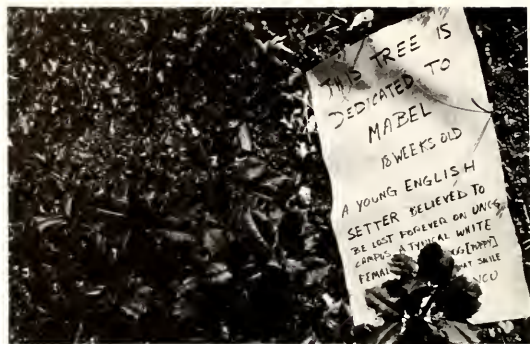 THIS TREE IS
DEDICATED TO
MABEL
18 WEEKS OLD
A YOUNG ENGLISH
SETTER BELIEVED TO
BE LOST FOREVER ON UNCG
CAMPUS. A TYPICAL WHITE
[PUPPY]
SMILE